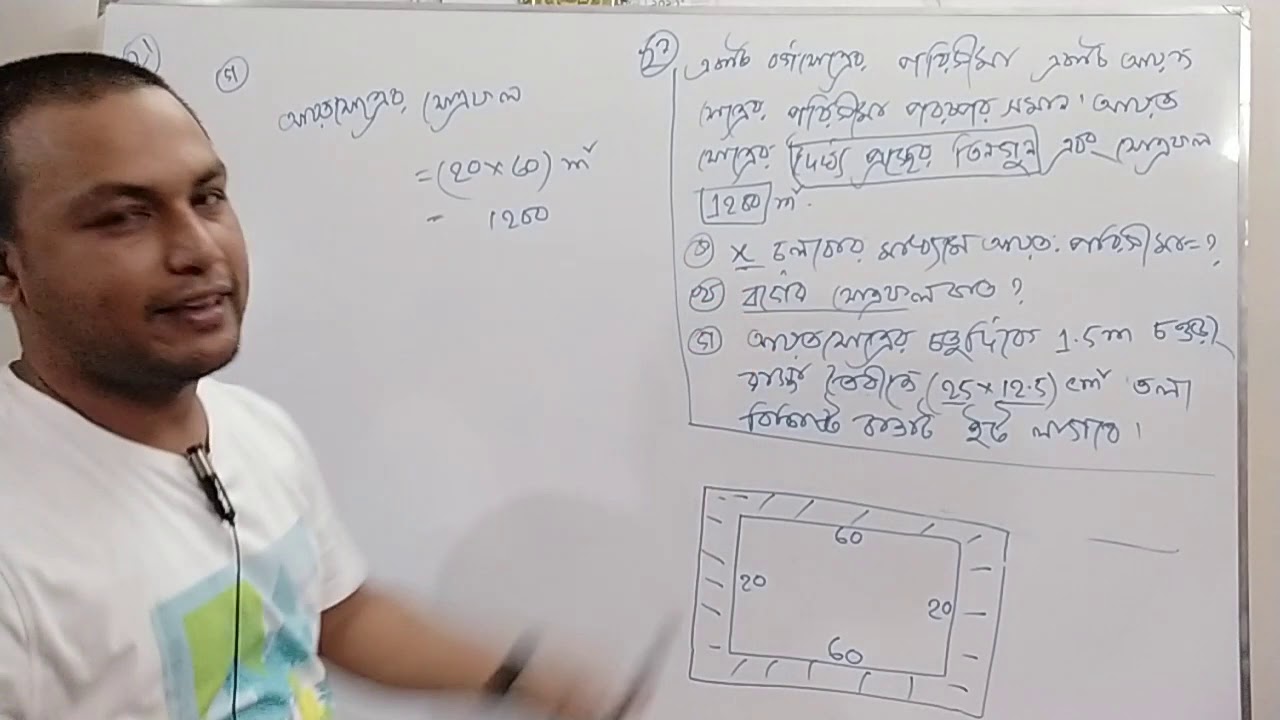 গ
আয়তক্ষেত্রের ক্ষেত্রফল
= (20 × 60) m²
= 1200
একটি বর্গক্ষেত্রের পরিসীমা একটি আয়ত
ক্ষেত্রের পরিসীমার পরস্পর সমান। আয়ত
ক্ষেত্রের দৈর্ঘ্য প্রস্থের তিনগুন এবং ক্ষেত্রফল
1200 m².
ক x চলকের মাধ্যমে আয়ত. পরিসীমা = ?
খ বর্গের ক্ষেত্রফল কত ?
গ আয়তক্ষেত্রের চতুর্দিকে 1.5 m চওড়া
রাস্তা তৈরীতে (25 × 12.5) cm² তলা
বিশিষ্ট কতটি ইট লাগবে।
60
20
20
60